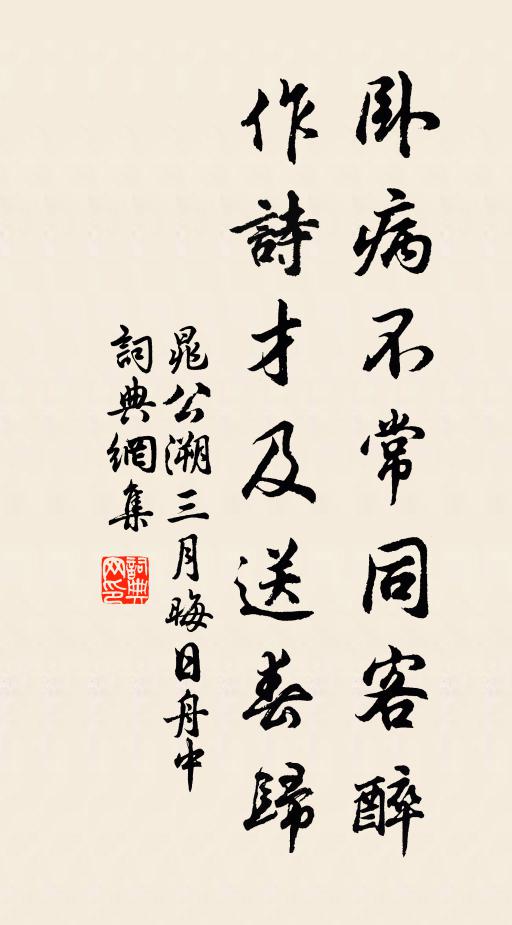 卧病不常同客醉
作詩才及送春歸
晁公溯三月晦日舟中
詞典網集
詞典網印